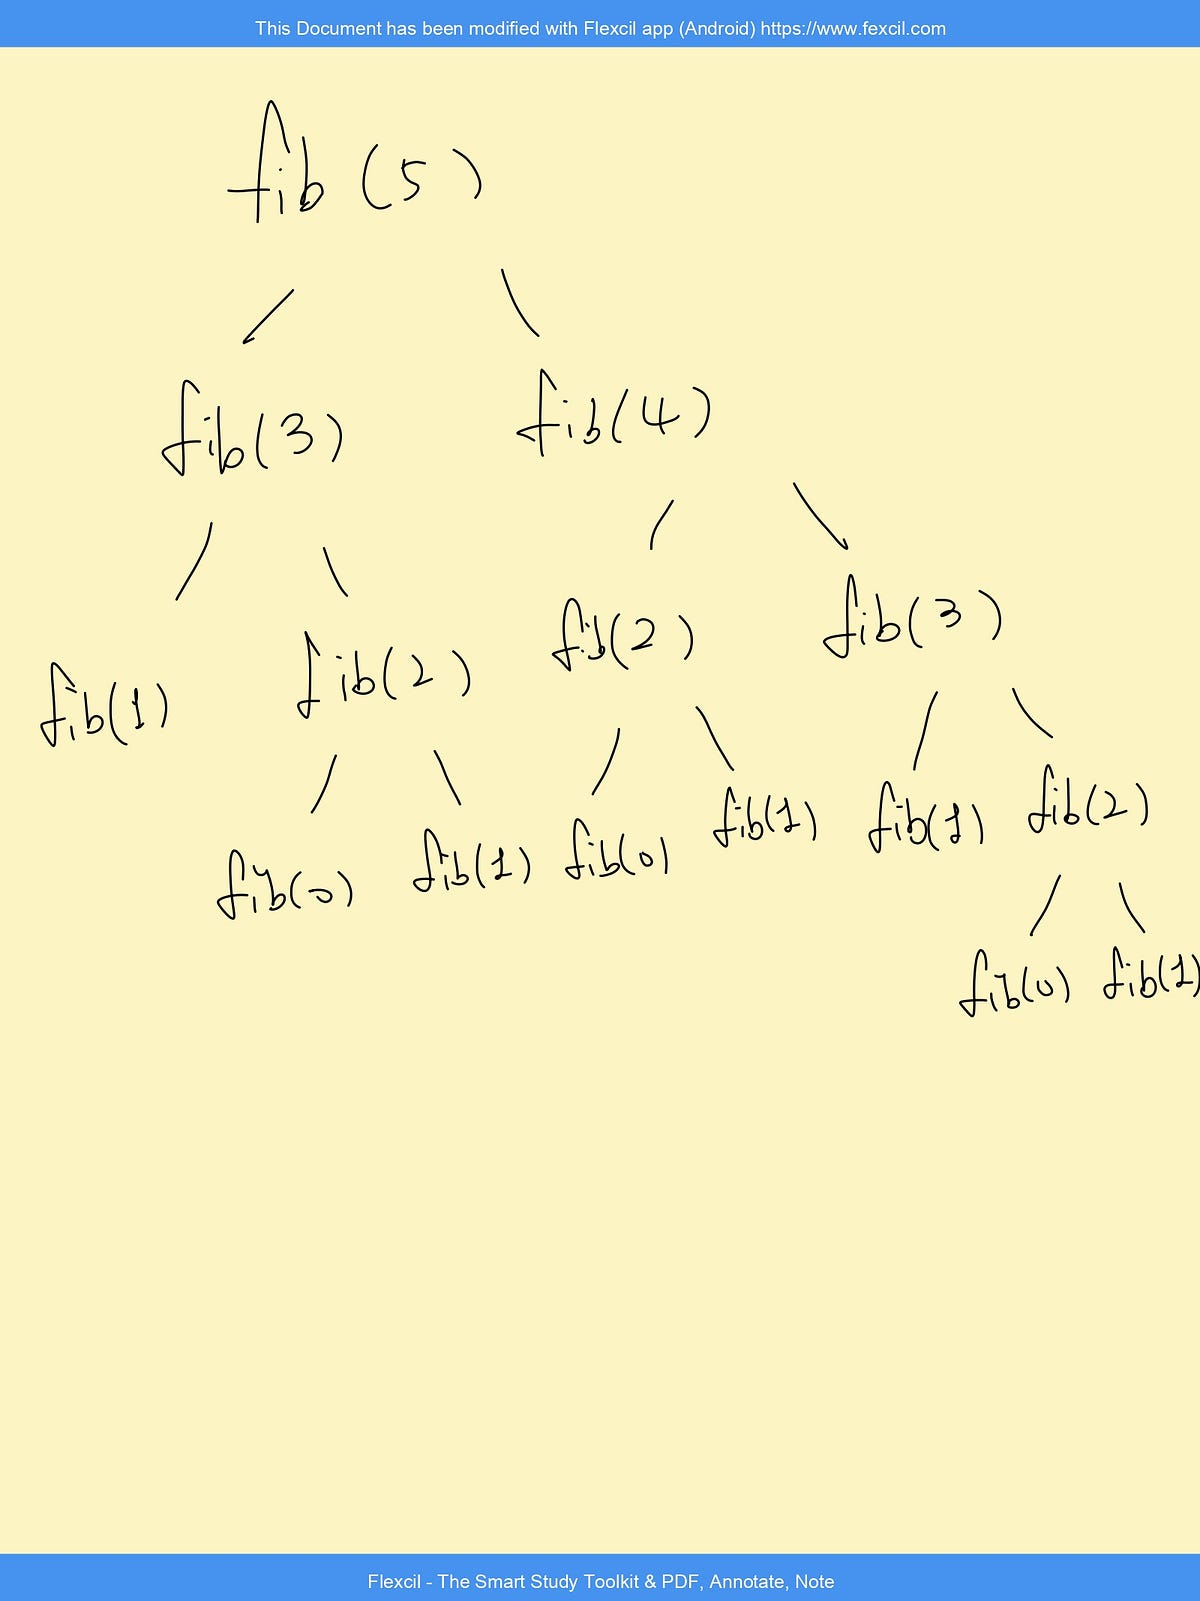 This Document has been modified with Flexcil app (Android) https://www.fexcil.com
fib (5)
fib(3) fib(4)
fib(2) fib(3)
fib(1) fib(2)
fib(0) fib(1) fib(0) fib(1) fib(1) fib(2)
fib(0) fib(1)
Flexcil - The Smart Study Toolkit & PDF, Annotate, Note